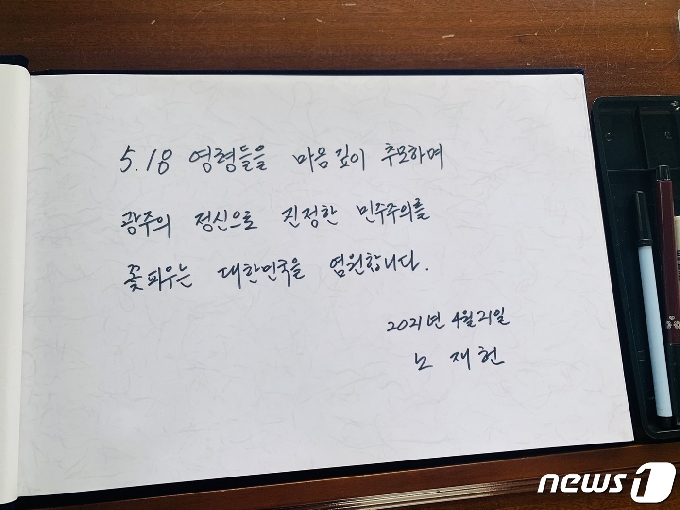 5.18 영령들을 마음깊이 추모하며
광주의 정신으로 진정한 민주주의를
꽃피우는 대한민국을 염원합니다.
2021년 4월 21일
노 재 헌
news1